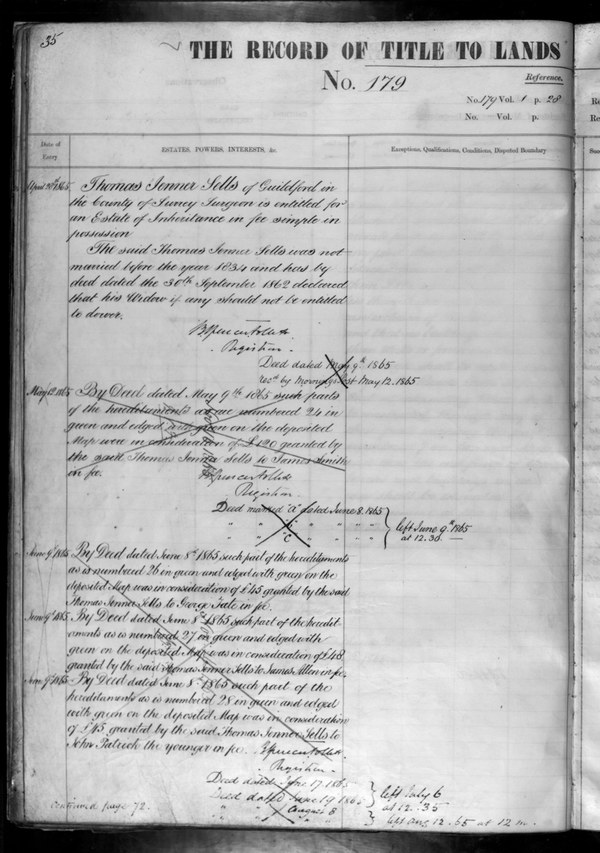 35
THE RECORD OF TITLE TO LANDS
No. 179
Reference.
No. 179 Vol. 1 p. 28
No. Vol. p.
Date of
Entry
ESTATES, POWERS, INTERESTS, &c.
Exceptions, Qualifications, Conditions, Disputed Boundary
April 20th 1865 Thomas Jenner Sells of Guildford in
the County of Surrey Surgeon is entitled for
an Estate of Inheritance in fee simple in
possession
The said Thomas Jenner Sells was not
married before the year 1834 and has by
deed dated the 30th September 1862 declared
that his Widow if any should not be entitled
to dower.
Registrar.
Deed dated May 9th 1865
recd by Morning Post May 12. 1865
May 12 1865 By Deed dated May 9th 1865 such parts
of the hereditaments as are numbered 24 in
green and edged with green on the deposited
Map were in consideration of £120 granted by
the said Thomas Jenner Sells to James Smith
in fee.
Registrar.
Deed marked "a" dated June 8. 1865
" " " " "
" " C " " "
left June 9th 1865
at 12.30
June 9th 1865 By Deed dated June 8th 1865 such part of the hereditaments
as is numbered 26 in green and edged with green on the
deposited Map was in consideration of £45 granted by the said
Thomas Jenner Sells to George Tale in fee.
June 9th 1865 By Deed dated June 8th 1865 such part of the heredit-
aments as is numbered 27 in green and edged with
green on the deposited Map was in consideration of £48
granted by the said Thomas Jenner Sells to James Allen in fee.
June 9th 1865 By Deed dated June 8th 1865 such part of the
hereditaments as is numbered 28 in green and edged
with green on the deposited Map was in consideration
of £45 granted by the said Thomas Jenner Sells to
John Patrick the younger in fee.
Registrar.
Deed dated June 17. 1865
Deed dated June 19 1865
" " August 5
left July 6
at 12.35
left Aug 12. 65 at 12 m.
Continued page 72.